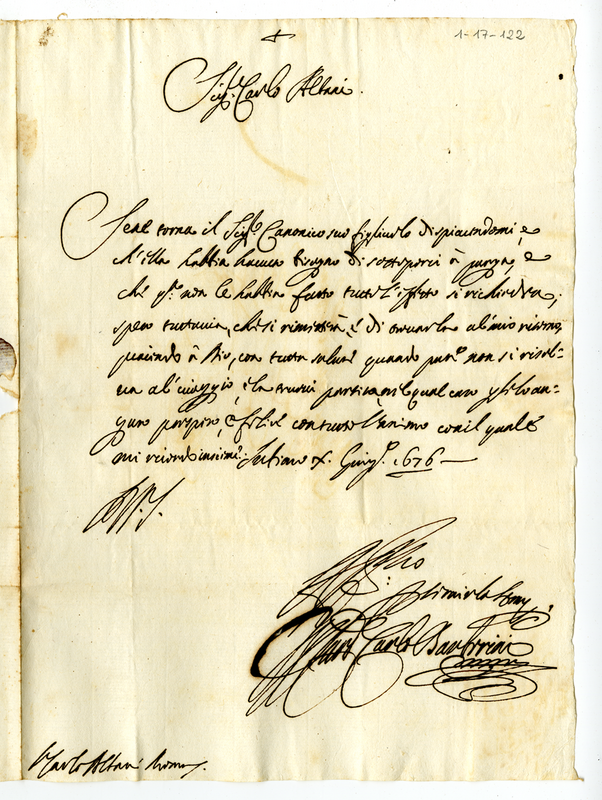 1-17-122
Sigr. Carlo Albani.
Se ne torna il Sigr. Canonico suo figliuolo dispiacendomi, e
ch'ella habbia havuto bisogno di sottoporsi à purga, e
che qta. non le habbia fatto tutto l'effetto si richiedeva;
spero tuttavia, che si rimetterà, e di trovarla al mio ritorno,
piacendo à Dio, con tutta salute quando però non si risol-
va al viaggio, e la trovi partita, nel qual caso glielo au-
guro prospero, e felice con tutto l'animo con il quale
mi ricordo insieme. X. Giugno. 1676
Carlo Barberini
Carlo Albani Roma.